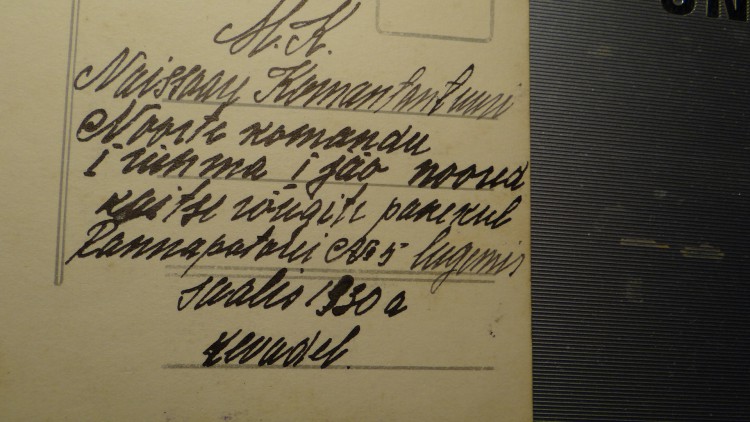 M. K.
Naissaar Komantantuuri
Noorte komandu
I rühma I jao noored
kaitse rõugite panekul
Rannapatarei No 5 lugemis
saalis 1930 a
kevadel.